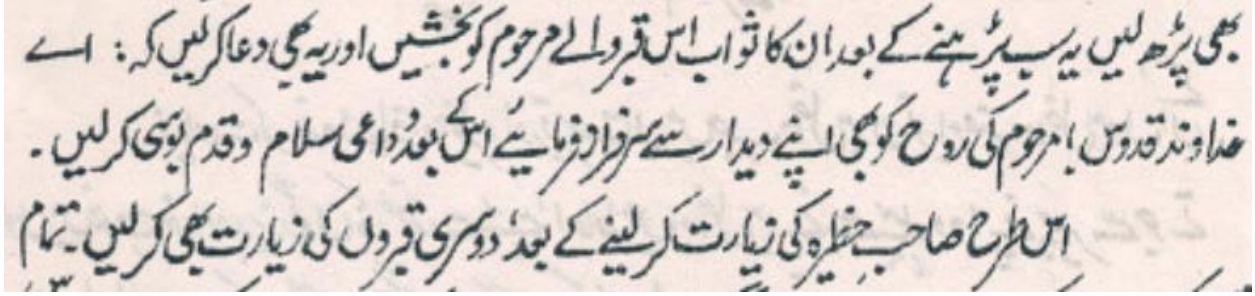 بھی پڑھ لیں یہ سب پڑہنے کے بعد ان کا ثواب اس قبر والے مرحوم کو بخشیں اور یہ بھی دعا کر لیں کہ : اے
خداوند قدوس ! مرحوم کی روح کو بھی اپنے دیدار سے سرفراز فرمایئے اس کے بعد وداعی سلام و قدم بوسی کر لیں ۔
اس طرح صاحب حظیرہ کی زیارت کر لینے کے بعد دوسری قبروں کی زیارت بھی کر لیں ۔ تمام